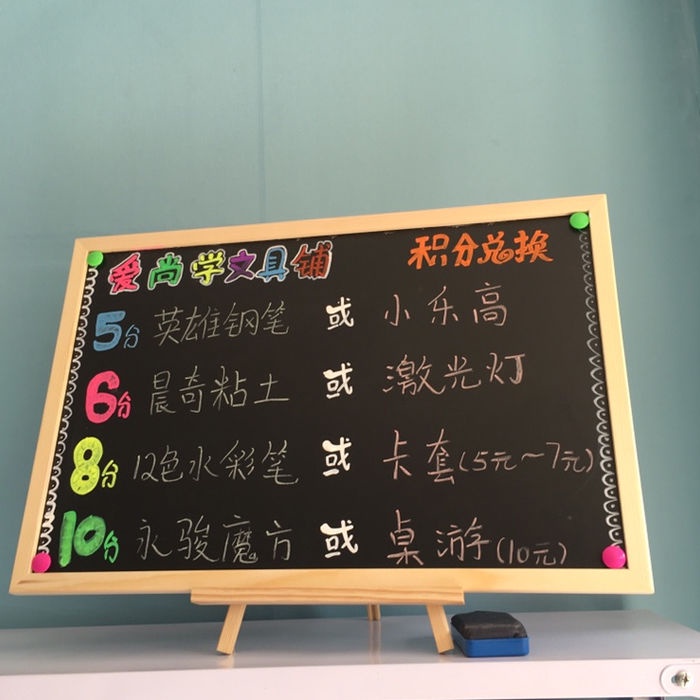 爱尚学文具铺 积分兑换
5分 英雄钢笔 或 小乐高
6分 晨奇粘土 或 激光灯
8分 12色水彩笔 或 卡套(5元~7元)
10分 永骏魔方 或 桌游(10元)